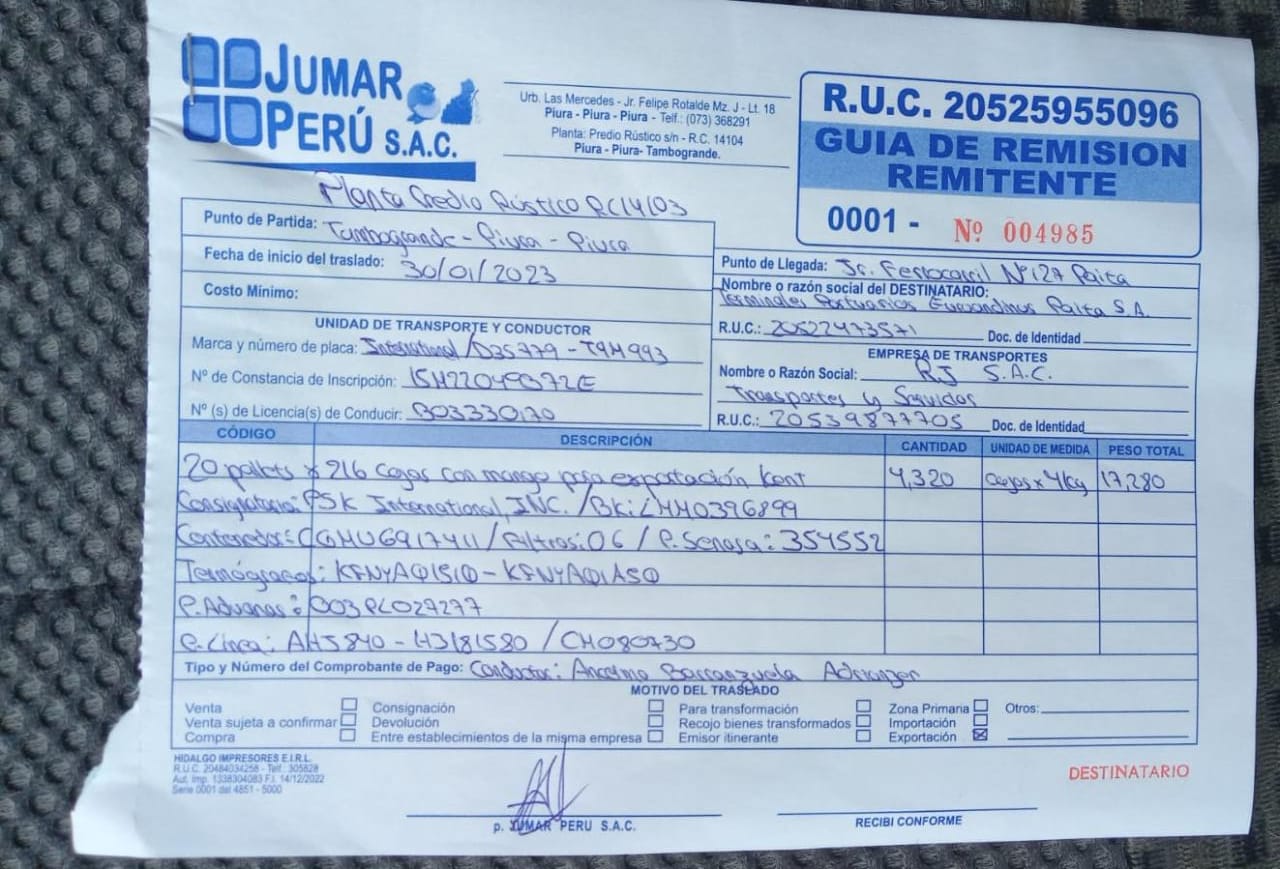 JUMAR
PERÚ S.A.C.
Urb. Las Mercedes - Jr. Felipe Rotalde Mz. J - Lt. 18
Piura - Piura - Piura - Telf.: (073) 368291
Planta: Predio Rústico s/n - R.C. 14104
Piura - Piura- Tambogrande.
R.U.C. 20525955096
GUIA DE REMISION
REMITENTE
0001 - Nº 004985
Planta Predio Rústico RC14103
Punto de Partida: Tambogrande - Piura - Piura
Fecha de inicio del traslado: 30/01/2023
Costo Mínimo:
Punto de Llegada: Jr. Ferrocarril Nº127 Paita
Nombre o razón social del DESTINATARIO:
Terminales Portuarios Euroandinos Paita S.A.
R.U.C.: 20522473571 Doc. de Identidad
UNIDAD DE TRANSPORTE Y CONDUCTOR
Marca y número de placa: International /D3S779 - T9M993
Nº de Constancia de Inscripción: 15M22049072E
Nº (s) de Licencia(s) de Conducir: B03330170
EMPRESA DE TRANSPORTES
Nombre o Razón Social: RJ S.A.C.
Transportes y Servicios
R.U.C.: 20539877705 Doc. de Identidad
CÓDIGO DESCRIPCIÓN CANTIDAD UNIDAD DE MEDIDA PESO TOTAL
20 pallets x 216 cajas con mango para exportación Kent 4,320 cajas x 4kg 17,280
Consignatario: PSK International, INC. /BK: LMM0396899
Contenedor: CGMU6917411 / Filtros: 06 / P. Senasa: 354552
Termógrafos: KFNYAQ1510 - KFNYAQ1A5Q
P. Aduanas: 003PL027277
P. Línea: AH5840 - H3181580 / CM080730
Tipo y Número del Comprobante de Pago: Conductor: Anselmo Barranzuela Adrianzen
MOTIVO DEL TRASLADO
Venta Consignación Para transformación Zona Primaria Otros:
Venta sujeta a confirmar Devolución Recojo bienes transformados Importación
Compra Entre establecimientos de la misma empresa Emisor itinerante Exportación
HIDALGO IMPRESORES E.I.R.L.
R.U.C. 20484034258 - Telf.: 305828
Aut. Imp. 1338304083 F.I. 14/12/2022
Serie 0001 del 4851 - 5000
DESTINATARIO
p. JUMAR PERU S.A.C.
RECIBI CONFORME